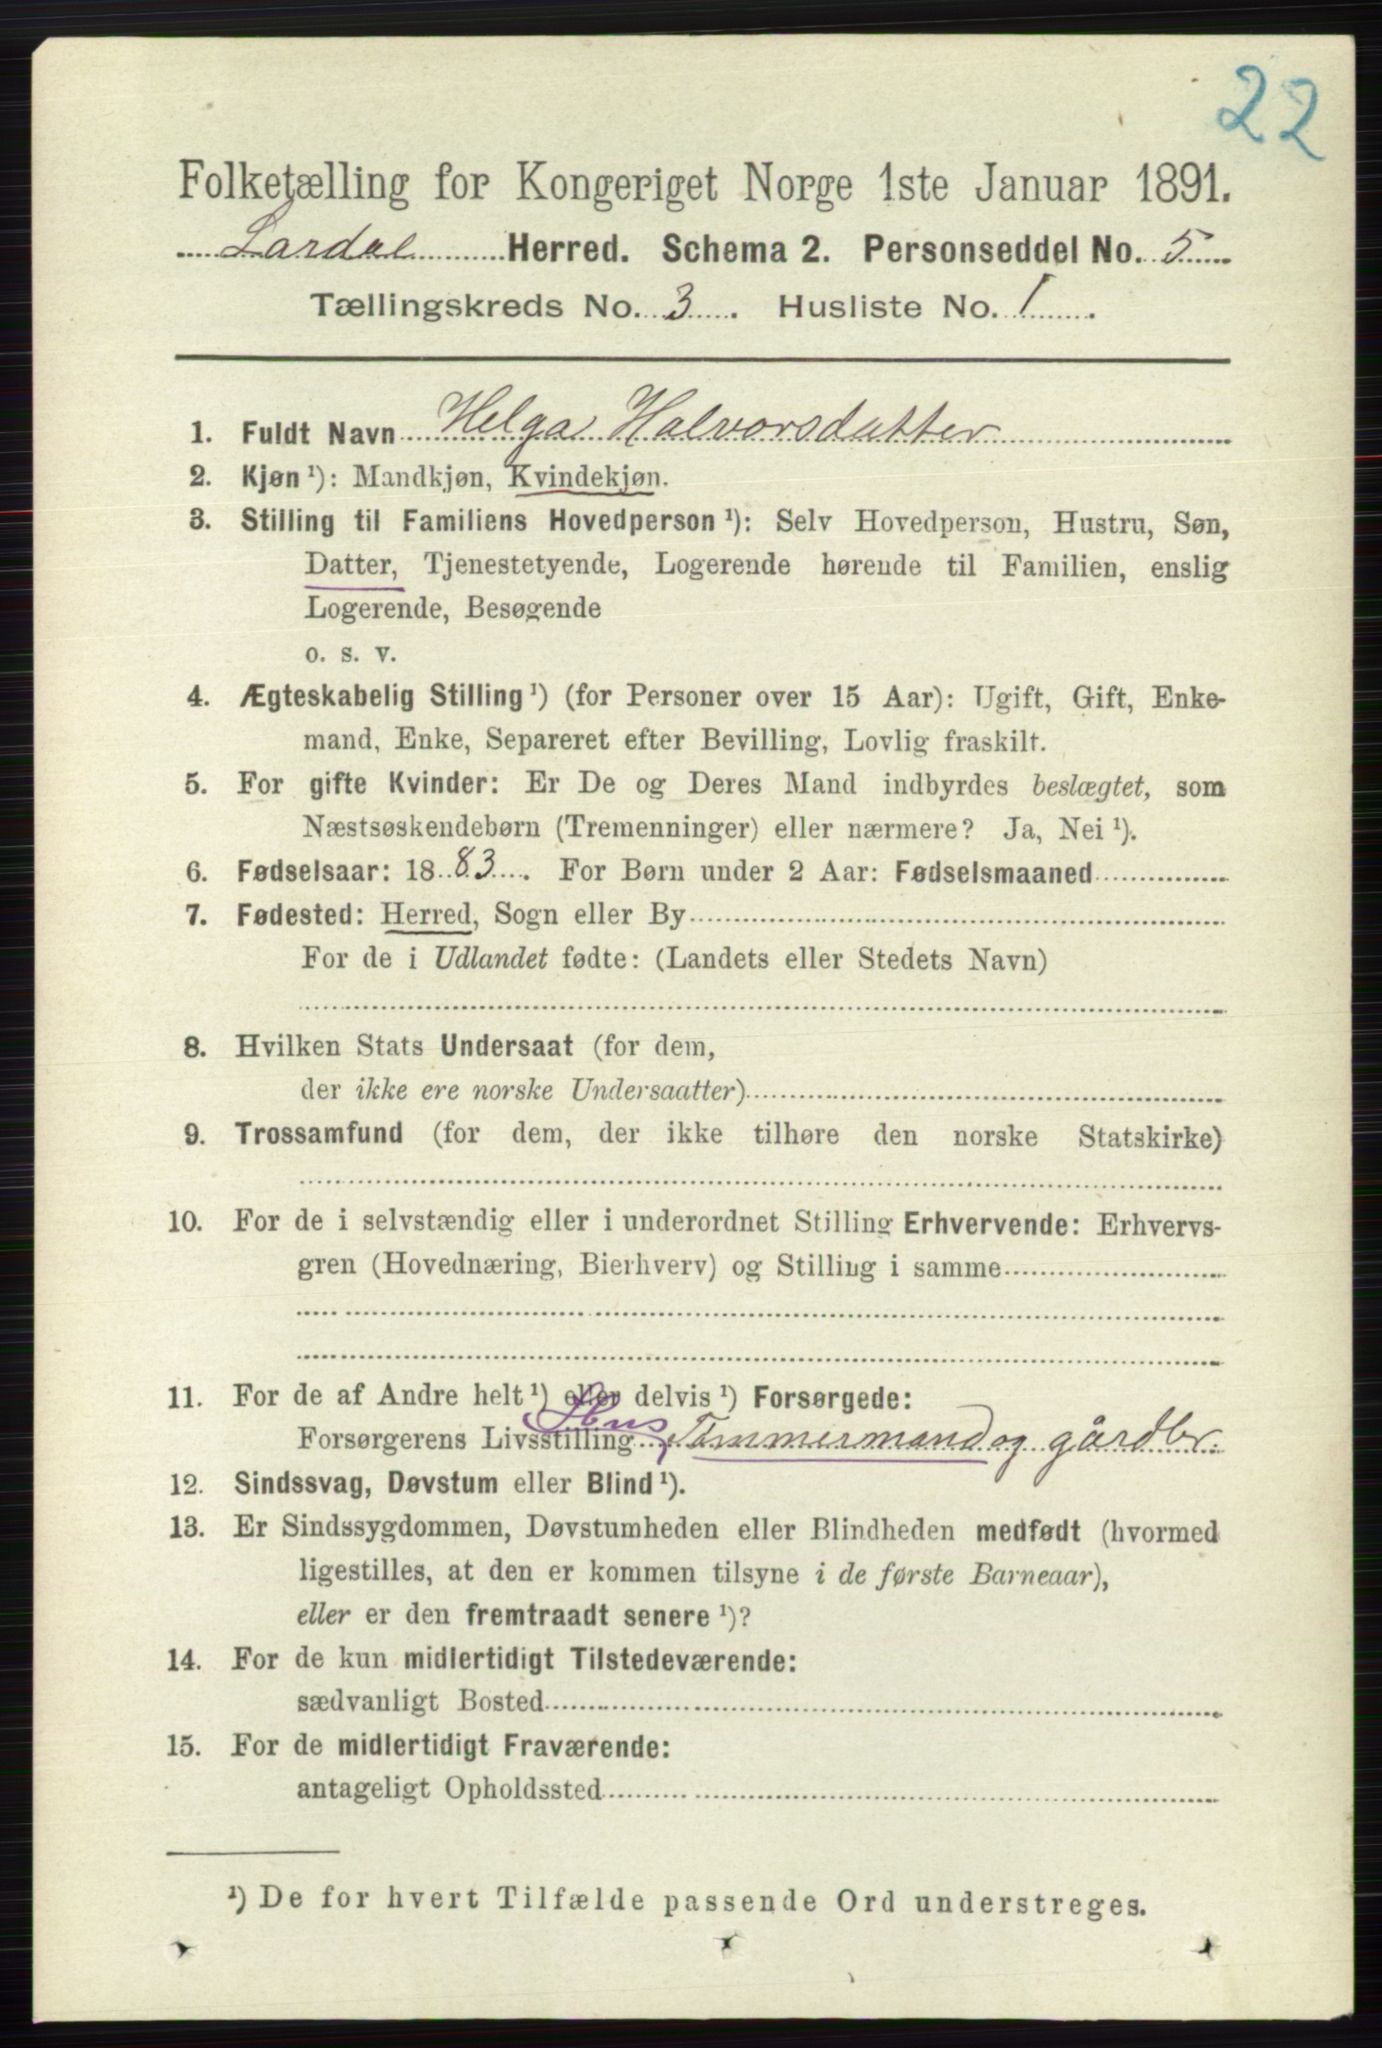 22
Folketælling for Kongeriget Norge 1ste Januar 1891.
Lardal Herred. Schema 2. Personseddel No. 5
Tællingskreds No. 3. Husliste No. 1.
1. Fuldt Navn Helga Halvorsdatter
2. Kjøn ¹): Mandkjøn, Kvindekjøn.
3. Stilling til Familiens Hovedperson ¹): Selv Hovedperson, Hustru, Søn,
Datter, Tjenestetyende, Logerende hørende til Familien, enslig
Logerende, Besøgende
o. s. v.
4. Ægteskabelig Stilling ¹) (for Personer over 15 Aar): Ugift, Gift, Enke-
mand, Enke, Separeret efter Bevilling, Lovlig fraskilt.
5. For gifte Kvinder: Er De og Deres Mand indbyrdes beslægtet, som
Næstsøskendebørn (Tremenninger) eller nærmere? Ja, Nei ¹).
6. Fødselsaar: 1883. For Børn under 2 Aar: Fødselsmaaned
7. Fødested: Herred, Sogn eller By
For de i Udlandet fødte: (Landets eller Stedets Navn)
8. Hvilken Stats Undersaat (for dem,
der ikke ere norske Undersaatter)
9. Trossamfund (for dem, der ikke tilhøre den norske Statskirke)
10. For de i selvstændig eller i underordnet Stilling Erhvervende: Erhvervs-
gren (Hovednæring, Bierhverv) og Stilling i samme
11. For de af Andre helt ¹) eller delvis ¹) Forsørgede:
Forsørgerens Livsstilling Hus Tømmermand og gårdbr.
12. Sindssvag, Døvstum eller Blind ¹).
13. Er Sindssygdommen, Døvstumheden eller Blindheden medfødt (hvormed
ligestilles, at den er kommen tilsyne i de første Barneaar),
eller er den fremtraadt senere ¹)?
14. For de kun midlertidigt Tilstedeværende:
sædvanligt Bosted
15. For de midlertidigt Fraværende:
antageligt Opholdssted
¹) De for hvert Tilfælde passende Ord understreges.